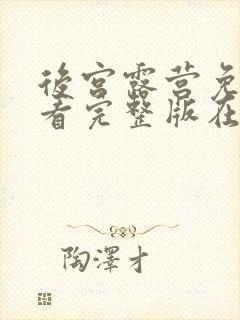 後宮露营免
看完整版在
陶澤才